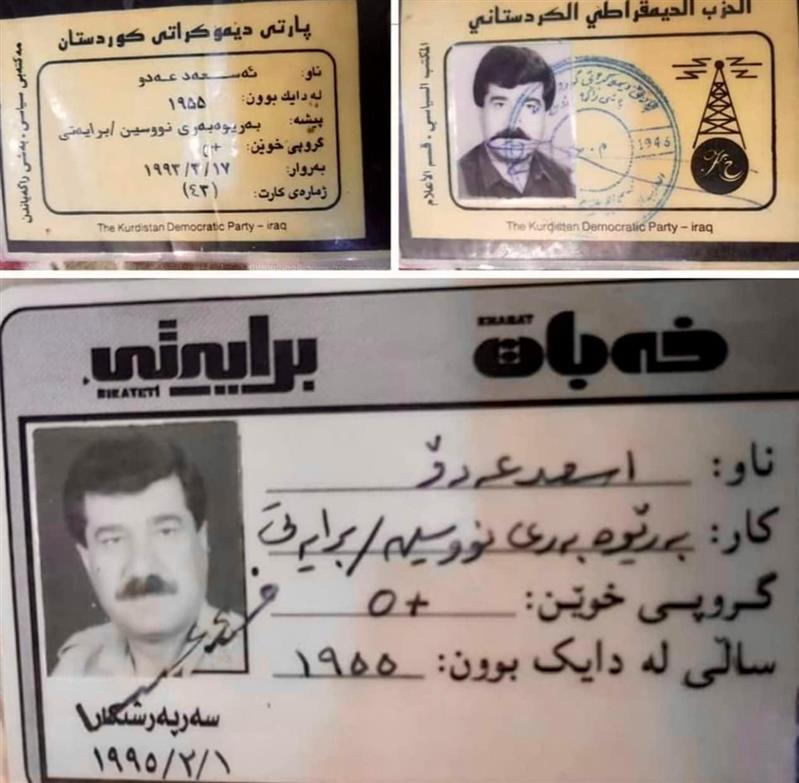 پارتی دیموکراتی کوردستان
ناو: ئەسعەد عەدو
لە دایک بوون: ١٩٥٥
پیشە: بەریوەبەری نووسین /برایەتی
گروپی خوێن: +o
بەروار: ١٩٩٣/٣/١٧
ژمارەی کارت: (٤٣)
مەکتەبی سیاسی - بەشی راگەیاندن
The Kurdistan Democratic Party – iraq
الحزب الديمقراطي الكردستاني
المكتب السياسي - قسم الاعلام
1946
The Kurdistan Democratic Party – iraq
خەبات
KHABAT
برایەتی
BIRAYETÎ
ناو: اسعد عەدۆ
کار: بەرێوەبەری نووسین/برایەتی
گروپی خوێن: +o
ساڵی لە دایک بوون: ١٩٥٥
سەرپەرشتکار
١٩٩٥/٢/١